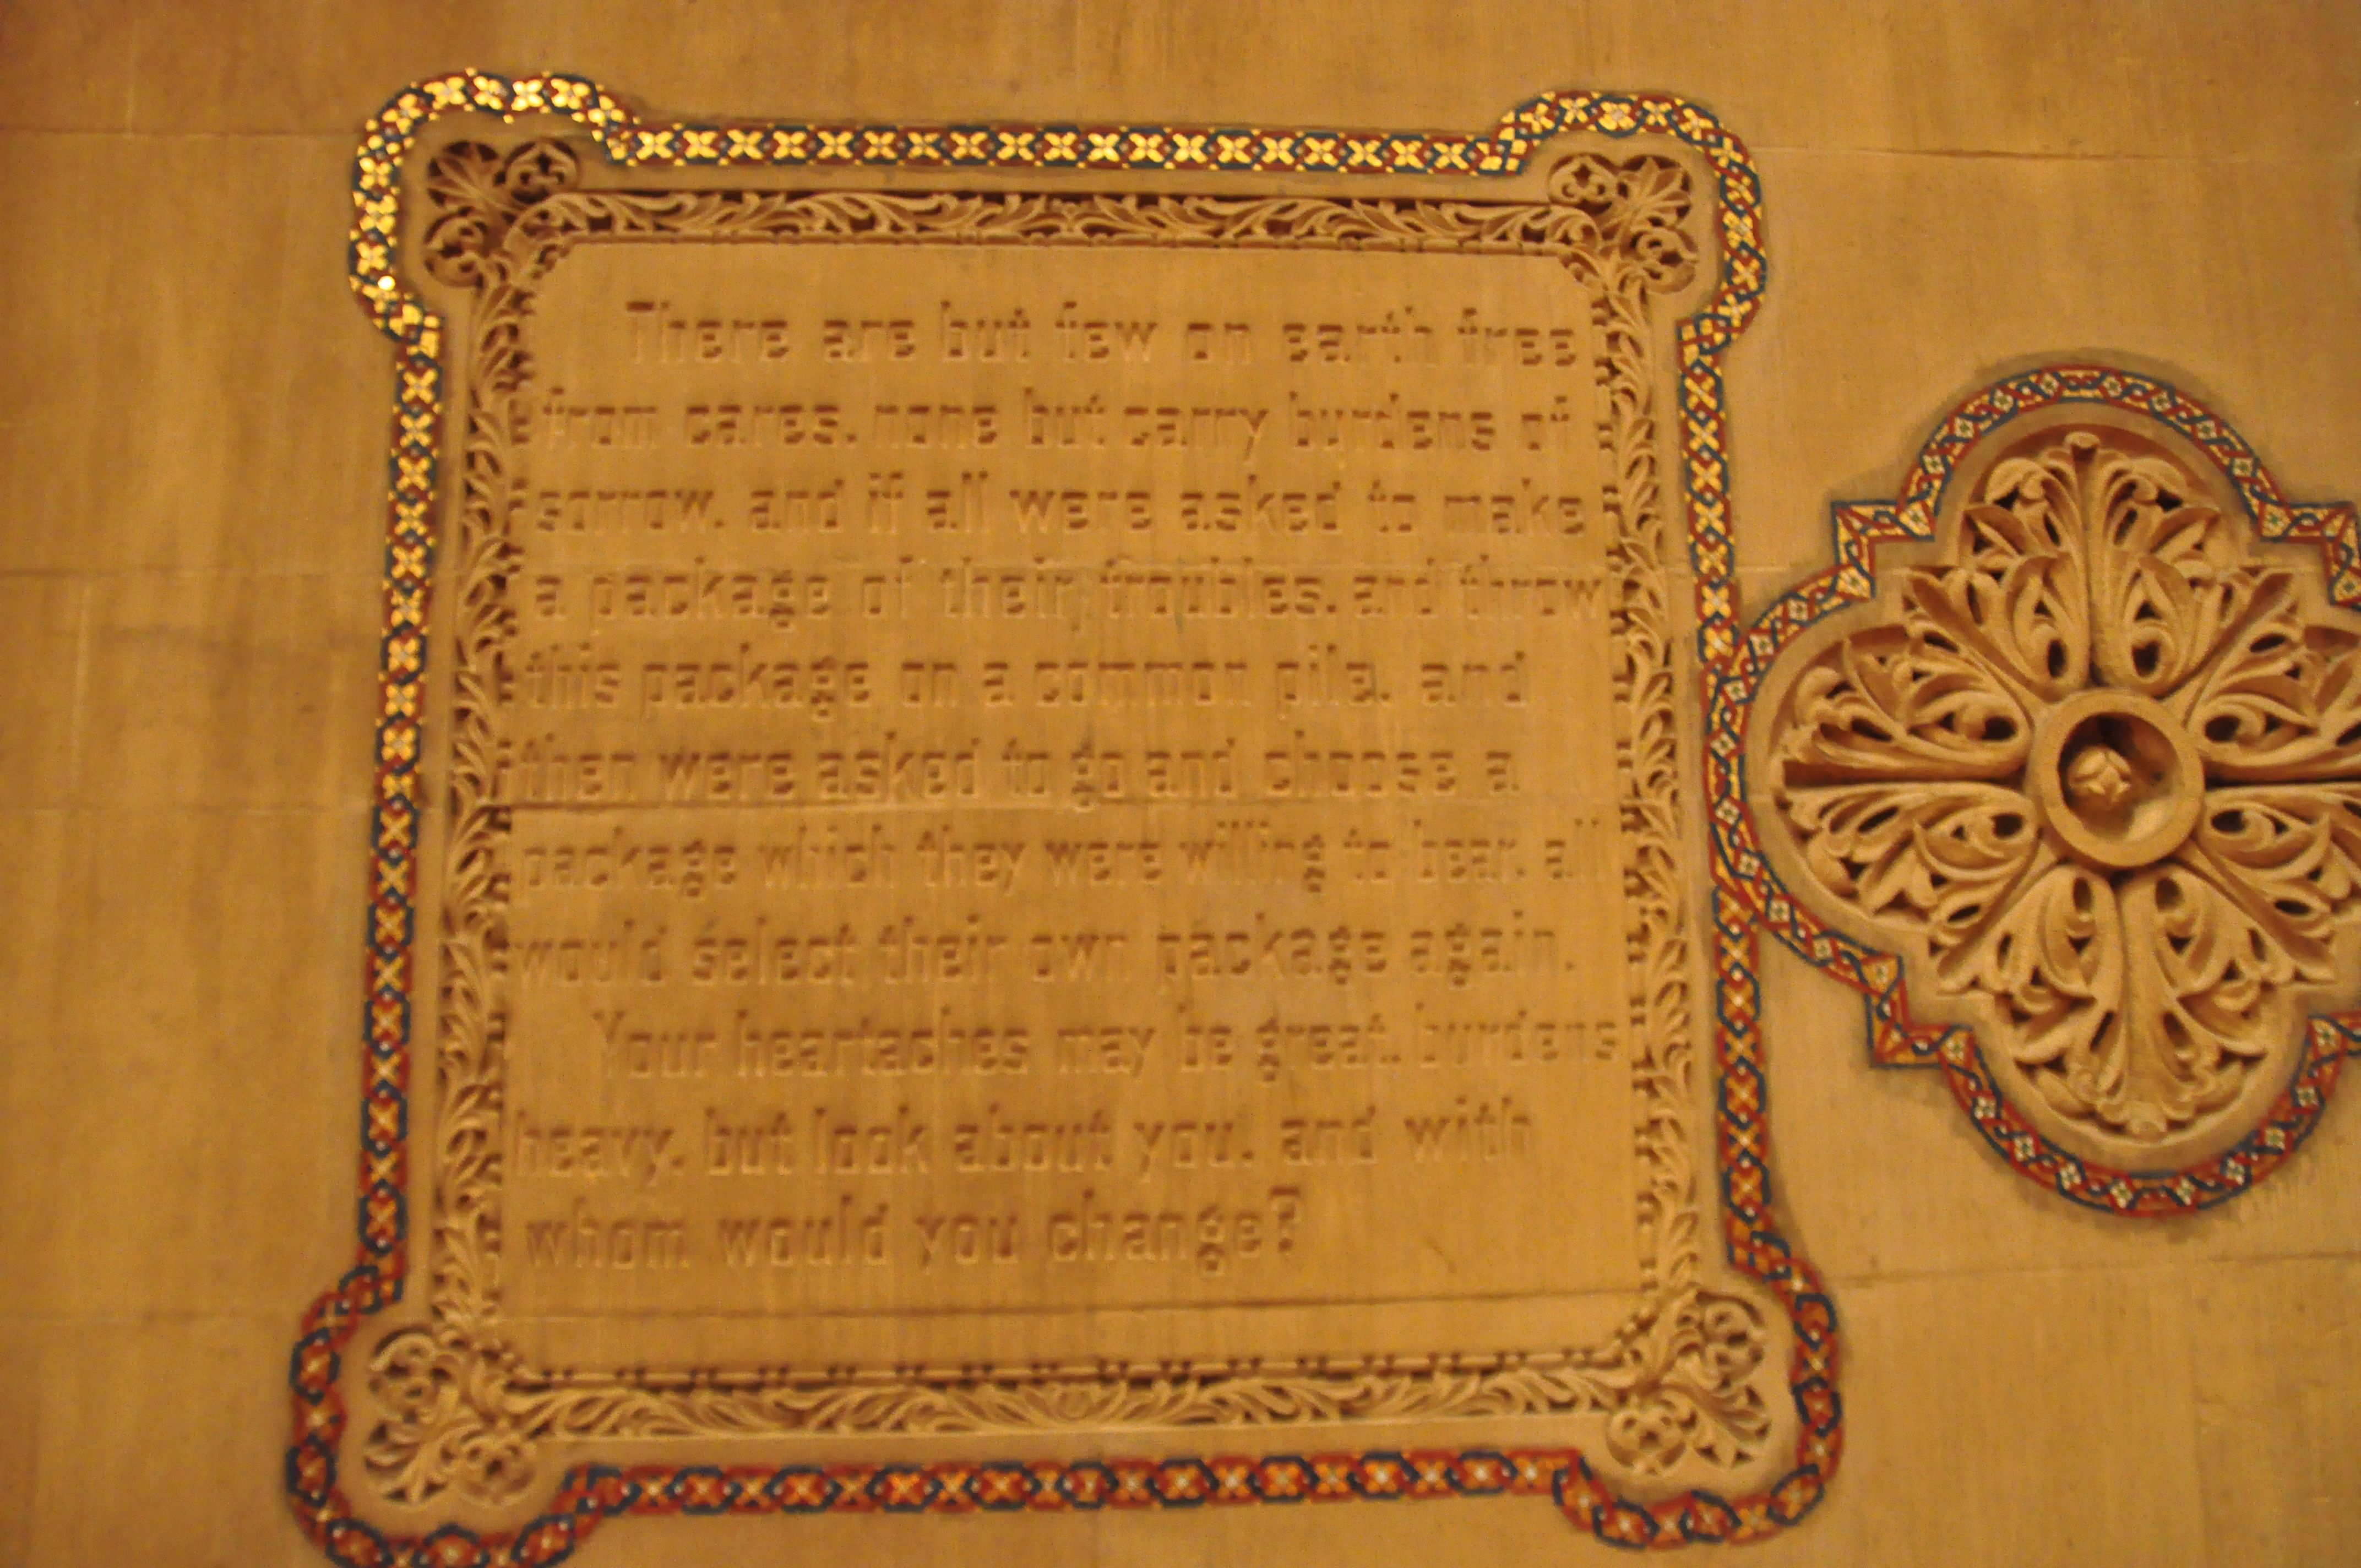 There are but few on earth free
from cares, none but carry burdens of
sorrow, and if all were asked to make
a package of their troubles, and throw
this package on a common pile, and
then were asked to go and choose a
package which they were willing to bear, all
would select their own package again.
Your heartaches may be great, burdens
heavy, but look about you, and with
whom would you change?